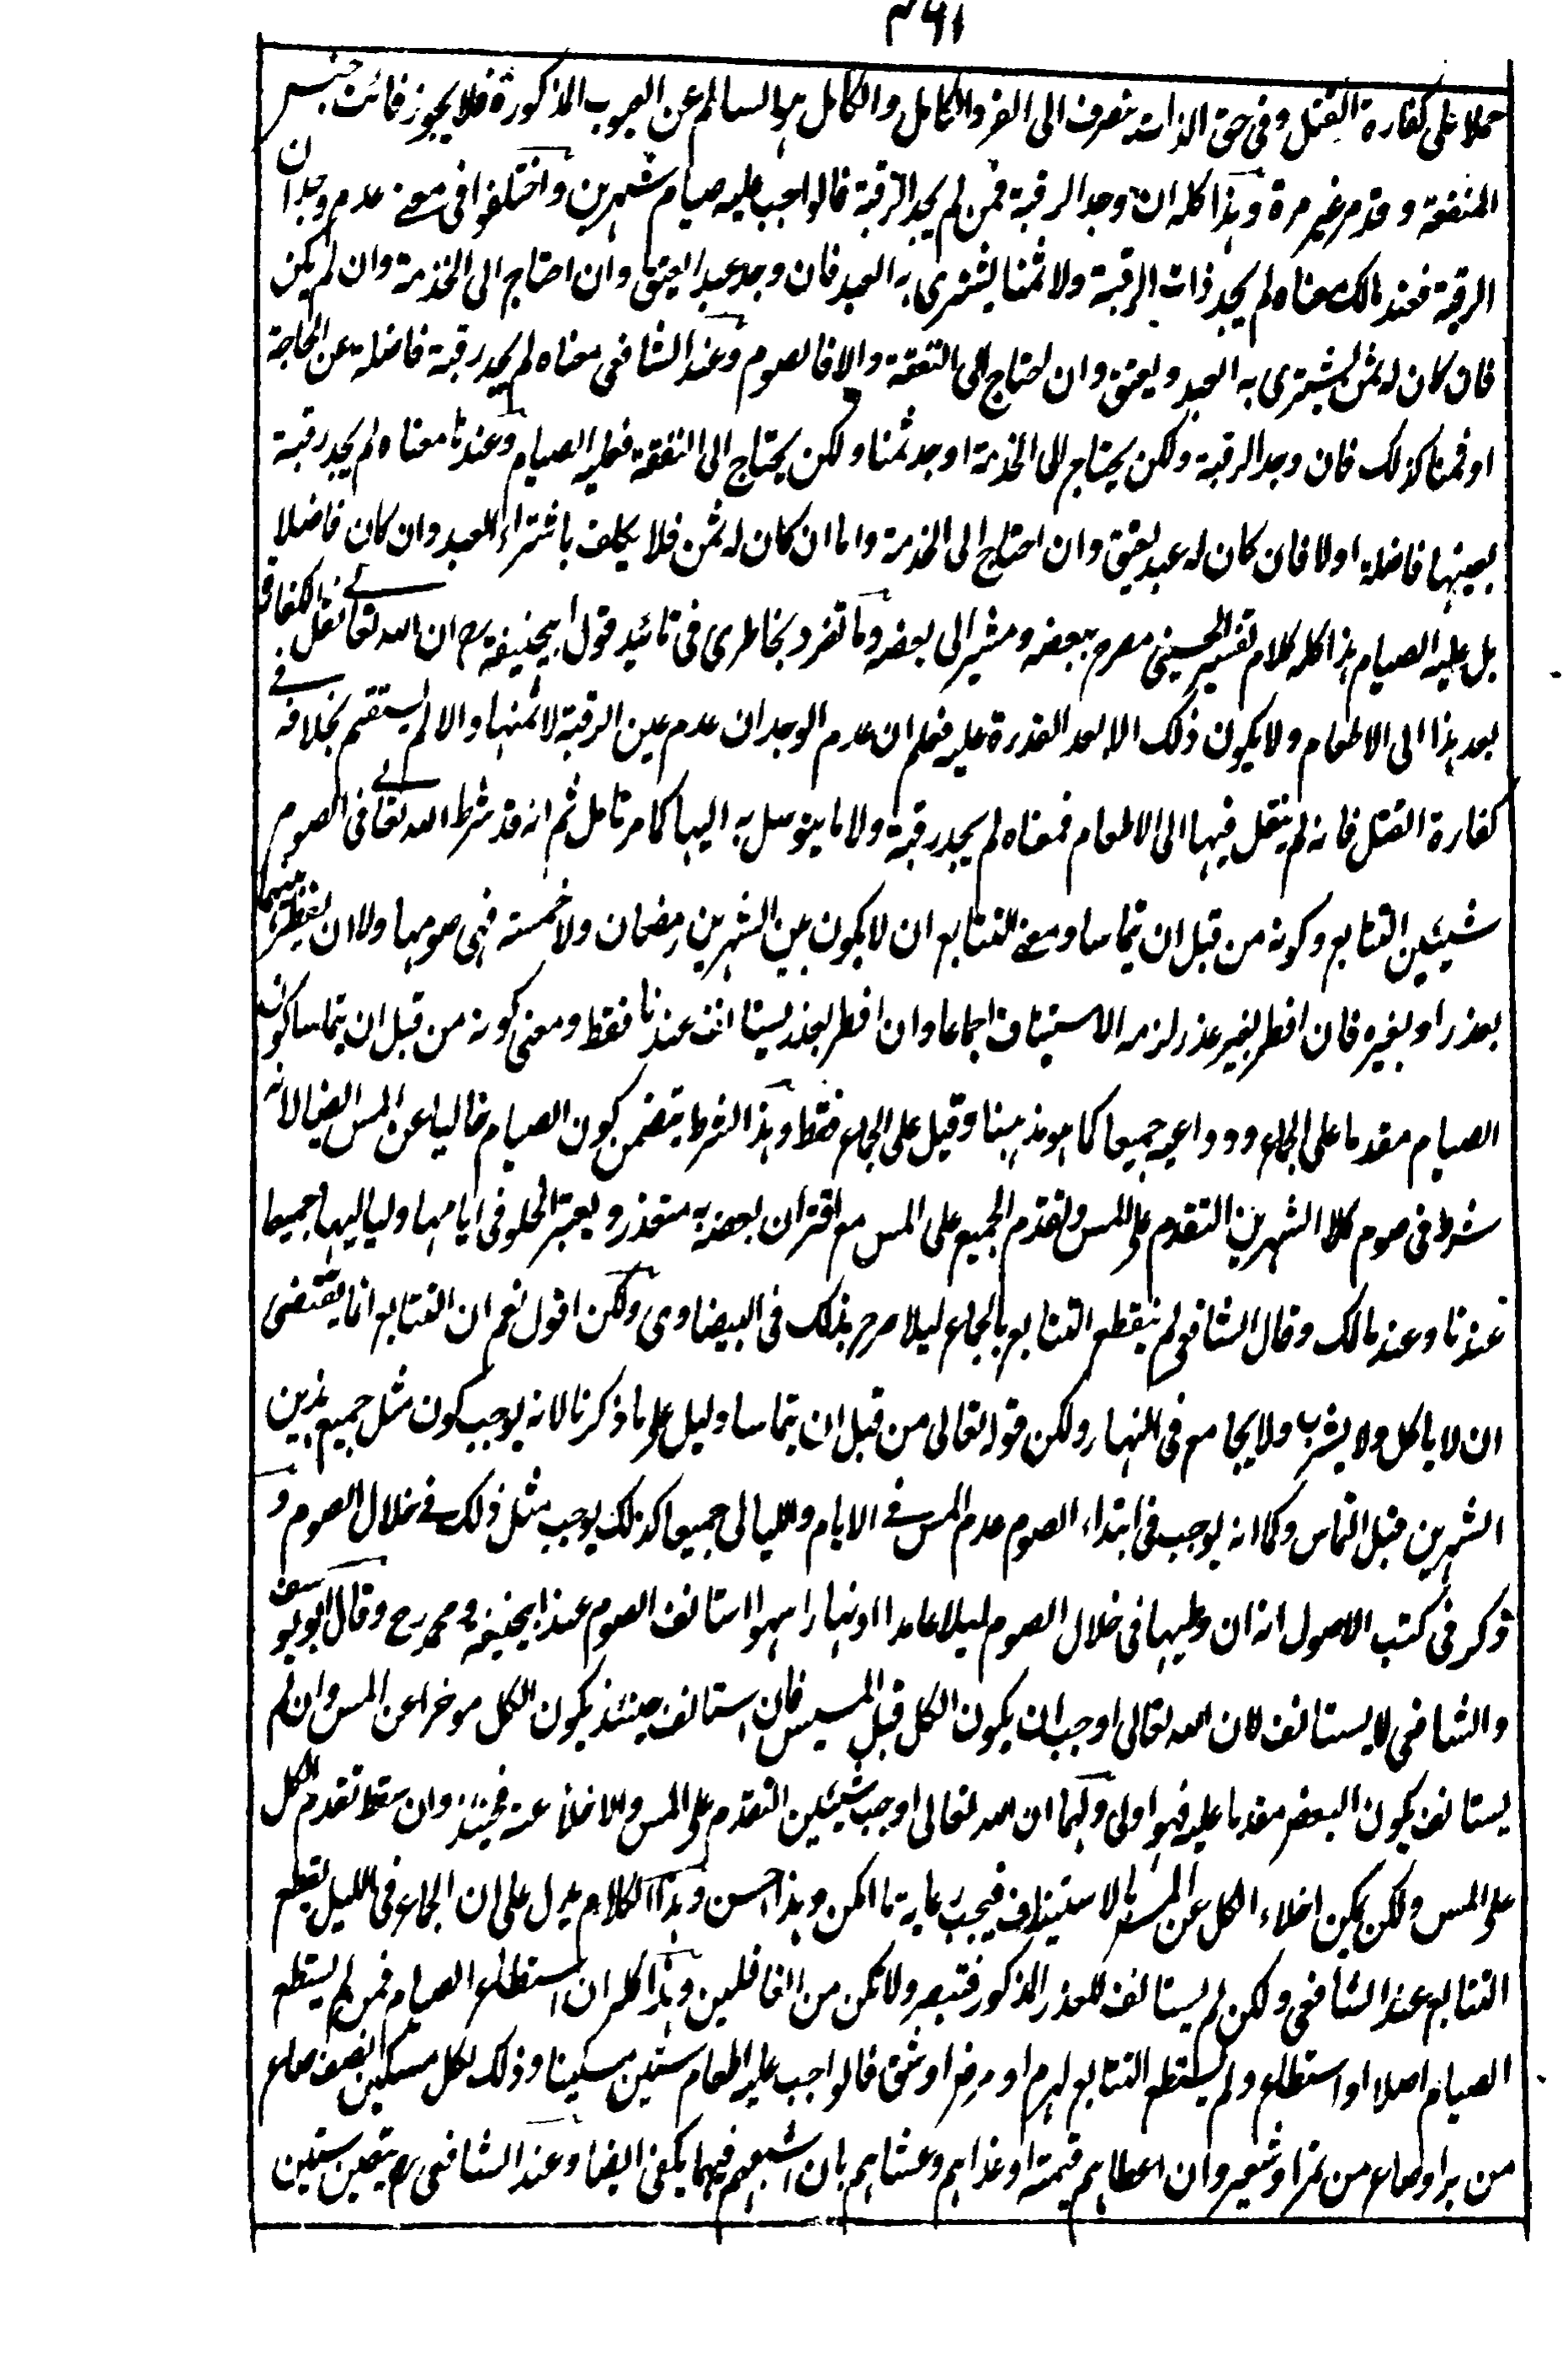 ۴۶۱
حملا على كفارة القتل وفى حق الذات ينصرف الى الفرد الكامل والكامل هو السالم عن العيوب المذكورة فلا يجوز فائت جنس
المنفعة وقد مر غير مرة وهذا كله ان وجد الرقبة فمن لم يجد الرقبة فالواجب عليه صيام شهرين واختلفوا فى معنے عدم وجدان
الرقبة فعند مالك معناه لم يجد ذات الرقبة ولا ثمنا يشترى به العبد فان وجد عبدا يعتق وان احتاج الى الخدمة وان لم يكن
فان كان له ثمن يشترى به العبد ويعتق وان احتاج الى النفقة والا فالصوم وعند الشافعى معناه لم يجد رقبة فاضلة عن الحاجة
او ثمنا كذلك فان وجد الرقبة ولكن يحتاج الى الخدمة او وجد ثمنا ولكن يحتاج الى النفقة فعليه الصيام وعندنا معناه لم يجد رقبة
بعينها فاضلة اولا فان كان له عبد يعتق وان احتاج الى الخدمة واما ان كان له ثمن فلا يكلف باشتراء العبد وان كان فاضلا
بل عليه الصيام هذا كله كلام تفسير الحسينى مصرح ببعضه ومشير الى بعضه وما تفرد بخاطرى فى تائيد قول ابيحنيفة رح ان الله تعالے نقل الكفارة
بعد هذا الى الاطعام ولا يكون ذلك الا بعد القدرة عليه فعلم ان عدم الوجدان عدم عين الرقبة لا ثمنها والا لم يستقم بخلافه فے
كفارة القتل فانه لم ينقل فيها الى الاطعام فمعناه لم يجد رقبة ولا ما يتوسل به اليها كما مر تامل ثم انه قد شرط الله تعالے فى الصوم
شيئين التتابع وكونه من قبل ان يتماسا ومعنے التتابع ان لا يكون بين الشهرين رمضان ولا خمسة نهى صومها ولا ان يفطر فيهما
بعذر او بغيره فان افطر بغير عذر لزمه الاستيناف اجماعا وان افطر بعذر يستانف عندنا فقط ومعنى كونه من قبل ان يتماسا كون
الصيام مقدما على الجماع ودواعيه جميعا كما هو مذهبنا وقيل على الجماع فقط وهذا الشرط يتضمن كون الصيام خاليا عن المس ايضا لانه
شرط فى صوم كلا الشهرين التقدم على المس وتقدم الجميع على المس مع اقتران بعضه به متعذر ويعتبر الخلو فى ايامها ولياليها جميعا
عندنا وعند مالك وقال الشافعى لم ينقطع التتابع بالجماع ليلا صرح بذلك فى البيضاوى ولكن اقول نعم ان التتابع انما يقتضى
ان لا ياكل ولا يشرب ولا يجامع فى النهار ولكن قوله تعالى من قبل ان يتماسا دليل على ما ذكرنا لانه يوجب كون مثل جميع هذين
الشهرين قبل التماس وكما انه يوجب فى ابتداء الصوم عدم المس فے الايام والليالى جميعا كذلك يوجب مثل ذلك فے خلال الصوم و
ذكر فى كتب الاصول انه ان وطيها فى خلال الصوم ليلا عامدا او نهارا سهوا استانف الصوم عند ابيحنيفة ومحمد رح وقال ابو يوسف
والشافعى لا يستانف لان الله تعالى اوجب ان يكون الكل قبل المسيس فان استانف حينئذ يكون الكل موخرا عن المس وان لم
يستانف يكون البعض مقدما عليه فهو اولى ولهما ان الله تعالى اوجب شيئين التقدم على المس والاخلاء عنه فحينئذ وان سقط تقدم الكل
على المس ولكن يمكن اخلاء الكل عن المس بالاستيناف فيجب رعاية ما امكن وهذا احسن وهذا الكلام يدل على ان الجماع فى الليل يقطع
التتابع عند الشافعى ولكن لم يستانف للعذر المذكور فتبصر ولا تكن من الغافلين وهذا كله ان استطاع الصيام فمن لم يستطع
الصيام اصلا او استطاع ولم يستطع التتابع لهرم او مرض او شق فالواجب عليه اطعام ستين مسكينا وذلك لكل مسكين نصف صاع
من بر او صاع من تمر او شعير وان اعطاهم قيمته او غداهم وعشاهم بان اشبعهم فيهما يكفى ايضا وعند الشافعى رح يتعين ستين